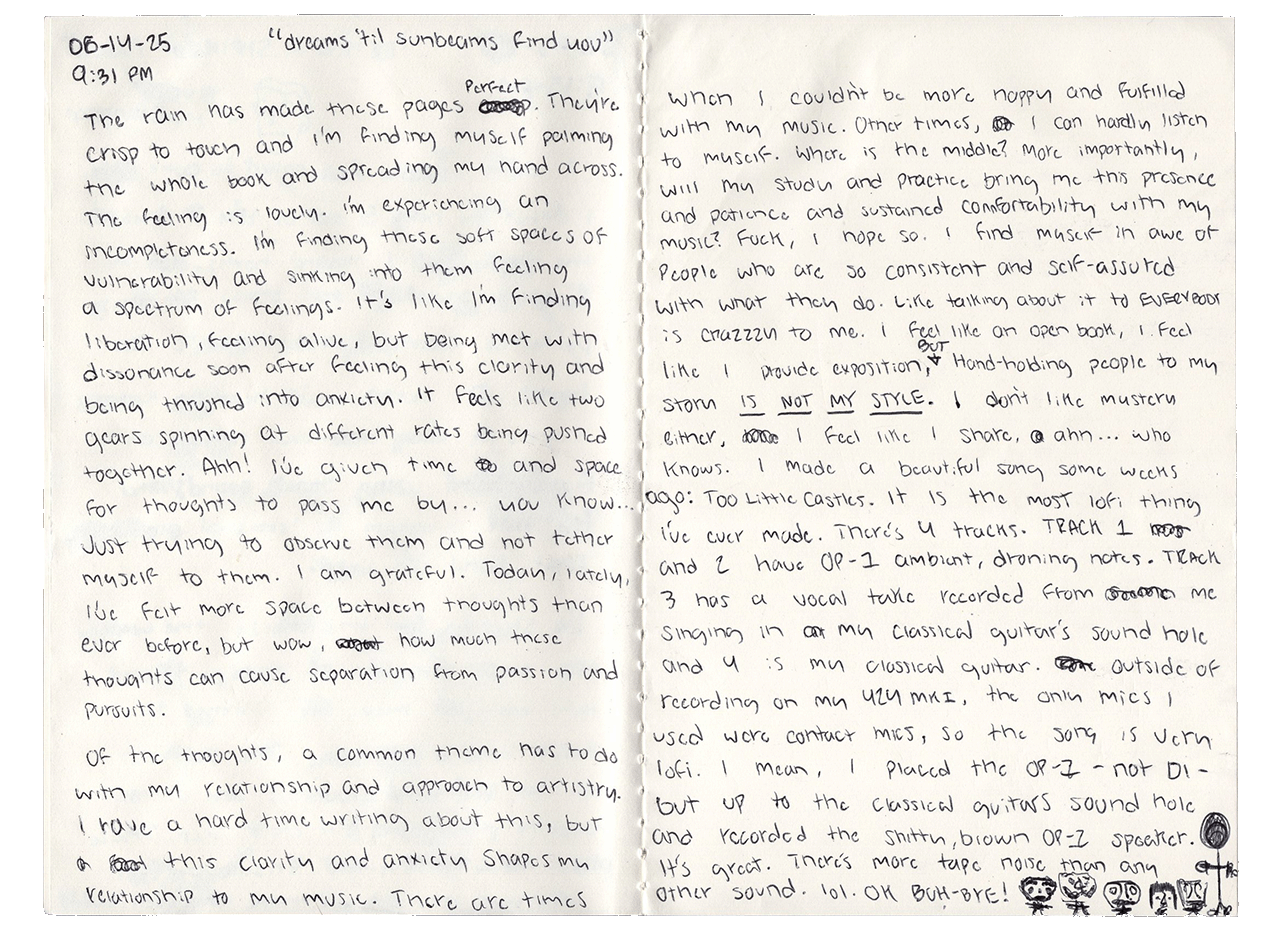 06-14-25 "dreams 'til sunbeams find you"
9:31 PM
The rain has made these pages Perfect. They're
crisp to touch and i'm finding myself palming
the whole book and spreading my hand across.
The feeling is lovely. i'm experiencing an
incompleteness. I'm finding these soft spaces of
vulnerability and sinking into them feeling
a spectrum of feelings. It's like I'm finding
liberation, feeling alive, but being met with
dissonance soon after feeling this clarity and
being thrushed into anxiety. It feels like two
gears spinning at different rates being pushed
together. Ahh! I've given time and space
for thoughts to pass me by... you know...
Just trying to observe them and not tether
myself to them. I am grateful. Today, lately,
i've felt more space between thoughts than
ever before, but wow, how much these
thoughts can cause separation from passion and
pursuits.
Of the thoughts, a common theme has to do
with my relationship and approach to artistry.
I have a hard time writing about this, but
this clarity and anxiety shapes my
relationship to my music. There are times
when I couldn't be more happy and fulfilled
with my music. Other times, I can hardly listen
to myself. Where is the middle? More importantly,
will my study and practice bring me this presence
and patience and sustained comfortability with my
music? Fuck, I hope so. I find myself in awe of
people who are so consistent and self-assured
with what they do. Like talking about it to EVERYBODY
is crazzzy to me. I feel like an open book, I feel
like I provide exposition, BUT Hand-holding people to my
story IS NOT MY STYLE. I don't like mystery
either, I feel like I share, ahh... who
knows. I made a beautiful song some weeks
ago: Too Little Castles. It is the most lofi thing
i've ever made. There's 4 tracks. TRACK 1
and 2 have OP-1 ambient, droning notes. TRACK
3 has a vocal take recorded from me
singing in my classical guitar's sound hole
and 4 is my classical guitar. outside of
recording on my 424 MKI, the only mics I
used were contact mics, so the song is very
lofi. I mean, I placed the OP-1 - not DI -
but up to the classical guitars sound hole
and recorded the shitty, blown OP-1 speaker.
It's great. There's more tape noise than any
other sound. lol. OK BUH-BYE!